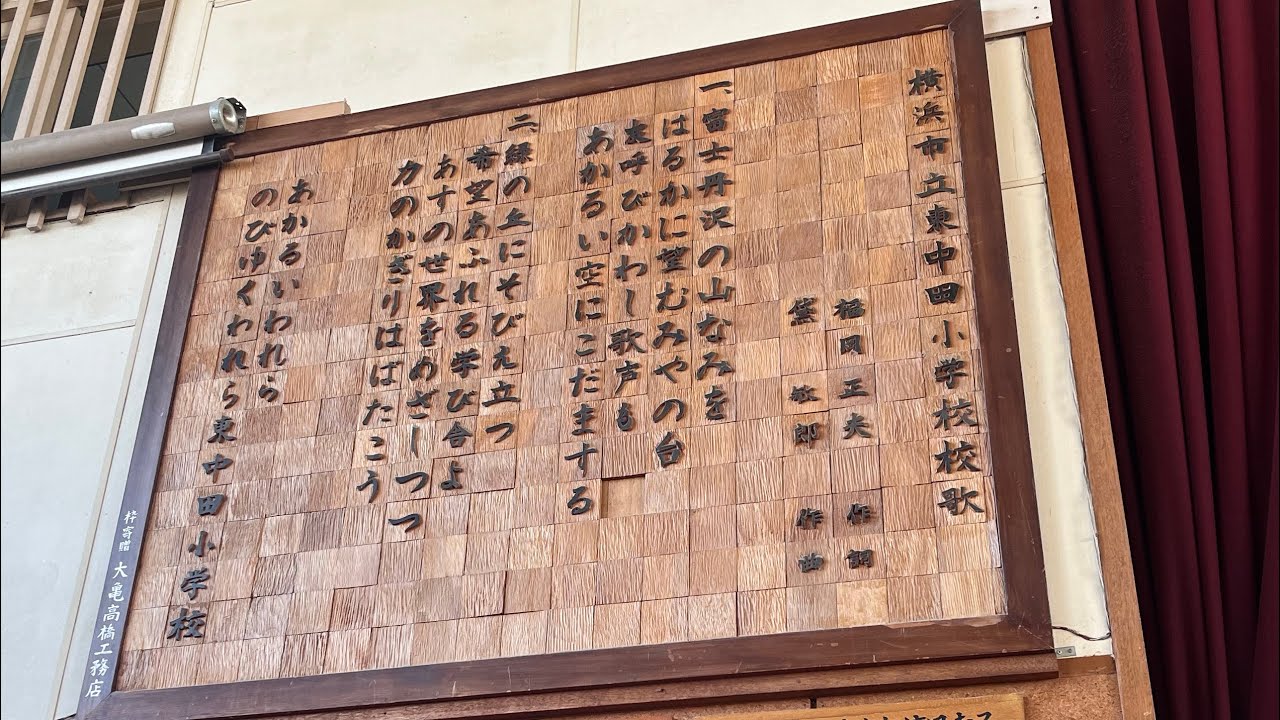 横浜市立東中田小学校校歌
福岡正夫 作詞
黛敏郎 作曲
一、富士丹沢の山なみを
はるかに望むみやの台
友呼びかわし歌声も
あかるい空にこだまする
二、緑の丘にそびえ立つ
希望あふれる学び舎よ
あすの世界をめざしつつ
力のかぎりはばたこう
あかるいわれら
のびゆくわれら東中田小学校
枠寄贈 大亀高橋工務店